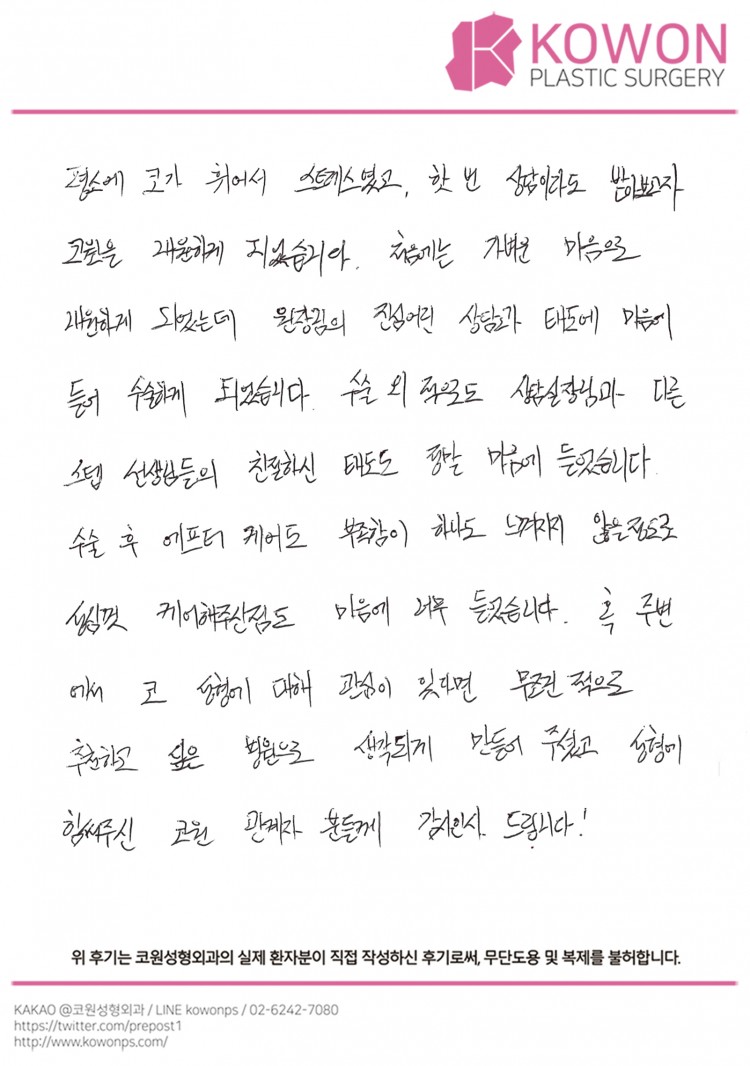 KOWON
PLASTIC SURGERY
평소에 코가 휘어서 스트레스였고, 한 번 상담이라도 받아보고자
코원을 내원하게 되었습니다. 처음에는 가벼운 마음으로
내원하게 되었는데 원장님의 진심어린 상담과 태도에 마음에
들어 수술하게 되었습니다. 수술 외 적으로도 상담실장님과 다른
스텝 선생님들의 친절하신 태도도 정말 마음에 들었습니다.
수술 후 에프터 케어도 부족함이 하나도 느껴지지 않은정도로
성심껏 케어해주신점도 마음에 너무 들었습니다. 혹 주변
에서 코 성형에 대해 관심이 있다면 무조건적으로
추천하고 싶은 병원으로 생각되게 만들어 주셨고 성형에
힘써주신 코원 관계자 분들께 감사인사 드립니다!
위 후기는 코원성형외과의 실제 환자분이 직접 작성하신 후기로써, 무단도용 및 복제를 불허합니다.
KAKAO @코원성형외과 / LINE kowonps / 02-6242-7080
https://twitter.com/prepost1
http://www.kowonps.com/